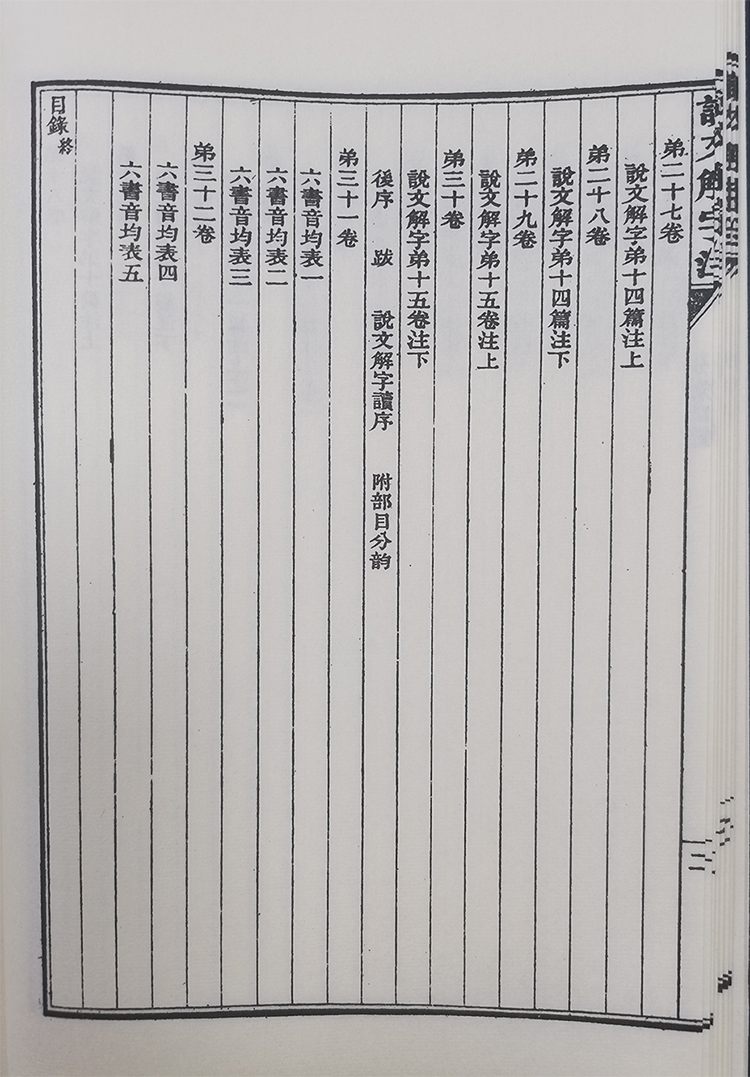 說文解字注
弟二十七卷
說文解字弟十四篇注上
弟二十八卷
說文解字弟十四篇注下
弟二十九卷
說文解字弟十五卷注上
弟三十卷
說文解字弟十五卷注下
後序　跋　說文解字讀序　附部目分韵
弟三十一卷
六書音均表一
六書音均表二
六書音均表三
弟三十二卷
六書音均表四
六書音均表五
目錄終